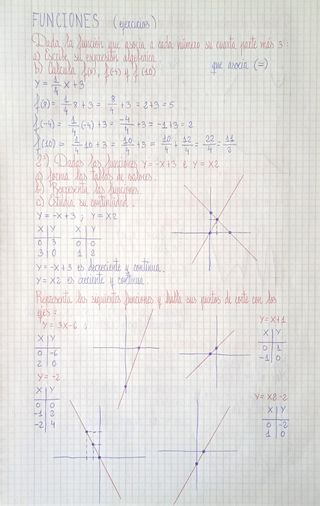 FUNCIONES (ejercicios)
Dada la función que asocia a cada número su cuarta parte más 3:
a) Escribe su expresión algebraica. que asocia (=)
b) Calcula f(8), f(-4) y f(10)
y = 1/4 x + 3
f(8) = 1/4 · 8 + 3 = 8/4 + 3 = 2+3 = 5
f(-4) = 1/4 (-4) + 3 = -4/4 + 3 = -1+3 = 2
f(10) = 1/4 10 + 3 = 10/4 + 3 = 10/4 + 12/4 = 22/4 = 11/2
2º) Dadas las funciones y = -x+3 e y = x2
a) Forma las tablas de valores.
b) Representa las funciones
c) Estudia su continuidad.
y = -x+3 ; y = x2
x y x y
0 3 0 0
3 0 1 2
y = -x+3 es decreciente y continua.
y = x2 es creciente y continua
Representa las siguientes funciones y halla sus puntos de corte con los
ejes =
y = 3x-6 ; y = x+1
x y x y
0 -6 0 1
2 0 -1 0
y = -2 y = x2-2
x y x y
0 0 0 -2
-1 2 1 0
-2 4